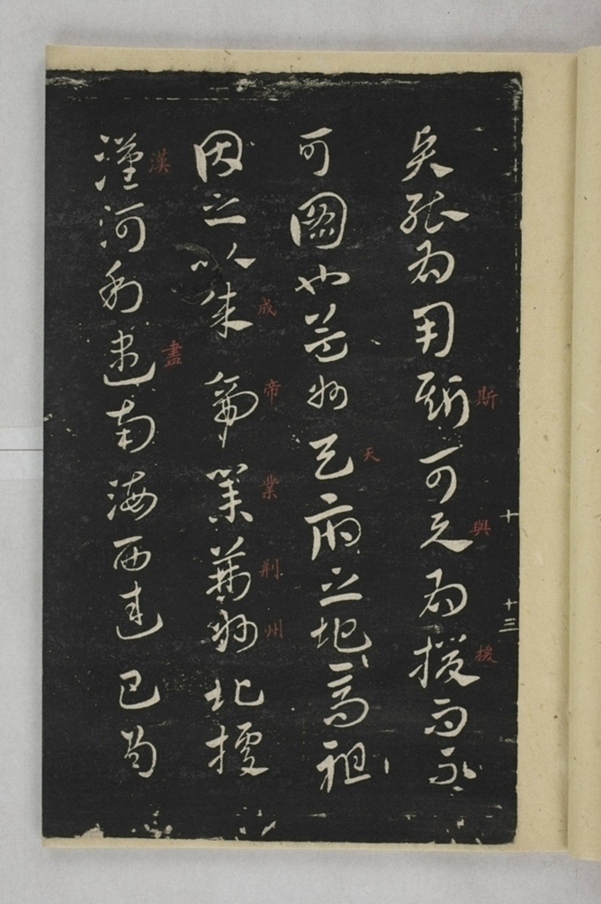 十 十三
能為用斯可與為援而不
斯 與 援
可圖也益州天府之地高祖
天
因之以成帝業荊州北據
成 帝 業 荊 州
漢沔利盡南海西連巴蜀
漢 盡